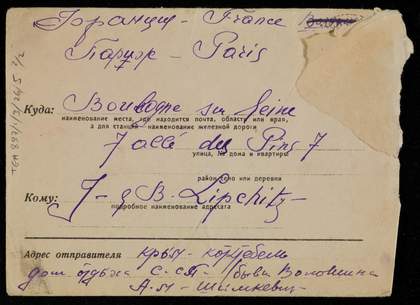 Франция - France
Париж - Paris
TGA 897/1/2/26/5 2/2
Куда: Boulogne sur Seine
наименование места, где находится почта, области или края,
а для станций наименование железной дороги
7 allé des Pins 7
улица, № дома и квартиры
район село или деревня
Кому: J - e B - Lipchitz -
подробное наименование адресата
Адрес отправителя Крым - Коктебель
дом отдыха С-СП - /бывш Волошина
А-М - Шимкевич -